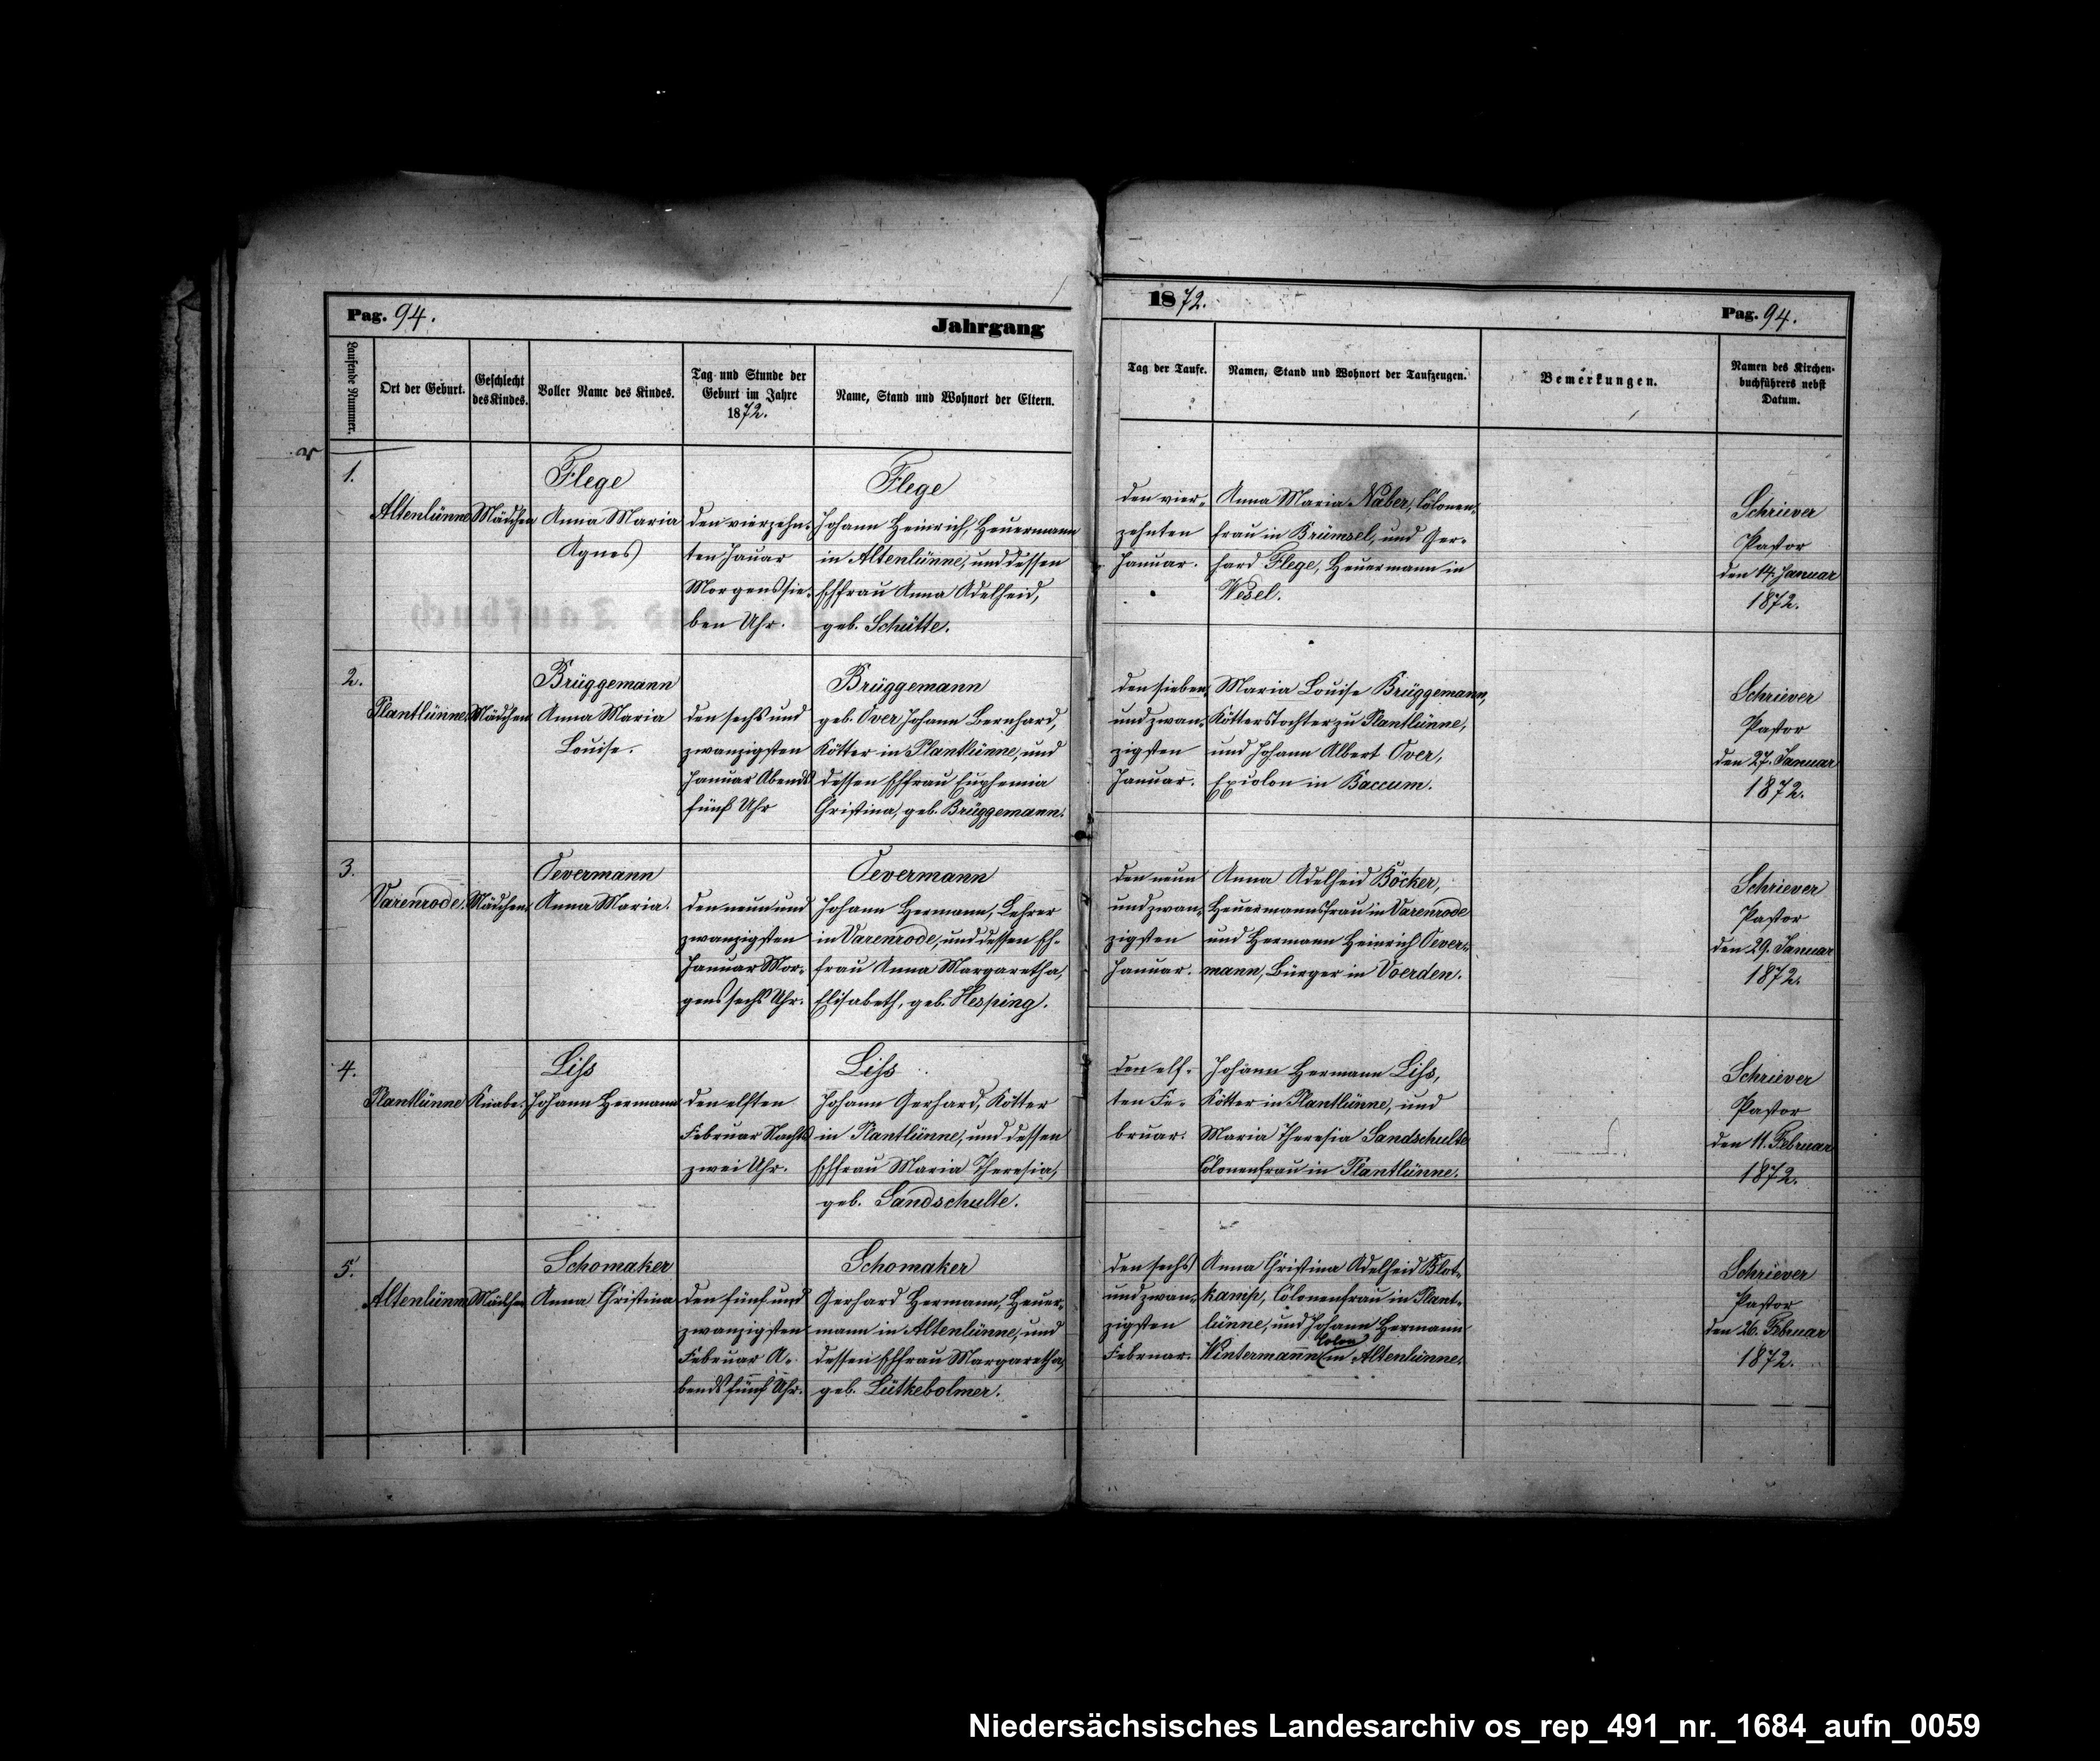 Pag. 94.
Jahrgang
1872.
Pag. 94.
Laufende Nummer.
Ort der Geburt.
Geschlecht
des Kindes.
Voller Name des Kindes.
Tag und Stunde der
Geburt im Jahre
1872.
Name, Stand und Wohnort der Eltern.
Tag der Taufe.
Namen, Stand und Wohnort der Taufzeugen.
Bemerkungen.
Namen des Kirchen-
buchführers nebst
Datum.
1.
Altenlünne
Mädchen
Flege
Anna Maria
Agnes
den vierzehn-
ten Jauar
Morgens sie-
ben Uhr.
Flege
Johann Heinrich, Heuermann
in Altenlünne, und dessen
Ehfrau Anna Adelheid,
geb. Schütte.
den vier-
zehnten
Januar.
Anna Maria Naber, Colonen-
frau in Brümsel, und Ger-
hard Flege, Heuermann in
Wesel.
Schriever
Pastor
den 14. Januar
1872.
2.
Plantlünne
Mädchen
Brüggemann
Anna Maria
Louise.
den sechs und
zwanzigsten
Januar Abends
fünf Uhr
Brüggemann
geb. Over Johann Bernhard,
Kötter in Plantlünne, und
dessen Ehfrau Euphemia
Christina, geb. Brüggemann.
den sieben
und zwan-
zigsten
Januar.
Maria Louise Brüggemann,
Kötterstochter zu Plantlünne,
und Johann Albert Over,
Excolon in Baccum.
Schriever
Pastor
den 27. Januar
1872.
3.
Varenrode.
Mädchen.
Oevermann
Anna Maria.
den neun und
zwanzigsten
Januar Mor-
gens sechs Uhr.
Oevermann
Johann Hermann, Lehrer
in Varenrode, und dessen Eh-
frau Anna Margaretha,
Elisabeth, geb. Hesping.
den neun
und zwan-
zigsten
Januar.
Anna Adelheid Böcker,
Heuermannsfrau in Varenrode
und Hermann Heinrich Oever-
mann, Bürger in Voerden.
Schriever
Pastor
den 29. Januar
1872.
4.
Plantlünne
Knabe.
Liss
Johann Hermann
den elften
Februar Nachts
zwei Uhr.
Liss
Johann Gerhard, Kötter
in Plantlünne, und dessen
Ehfrau Maria Theresia,
geb. Sandschulte.
den elf-
ten Fe-
bruar.
Johann Hermann Liss,
Kötter in Plantlünne, und
Maria Theresia Sandschulte
Colonenfrau in Plantlünne.
Schriever
Pastor
den 11. Februar
1872.
5.
Altenlünne
Mädchen
Schomaker
Anna Christina
den fünf und
zwanzigsten
Februar A-
bends fünf Uhr.
Schomaker
Gerhard Hermann, Heuer-
mann in Altenlünne, und
dessen Ehfrau Margaretha,
geb. Lütkebolmer.
den sechs
und zwan-
zigsten
Februar.
Anna Christina Adelheid Blot-
kamp, Colonenfrau in Plant-
lünne, und Johann Hermann
Colon
Wintermann in Altenlünne.
Schriever
Pastor
den 26. Februar
1872.
Niedersächsisches Landesarchiv os_rep_491_nr._1684_aufn_0059